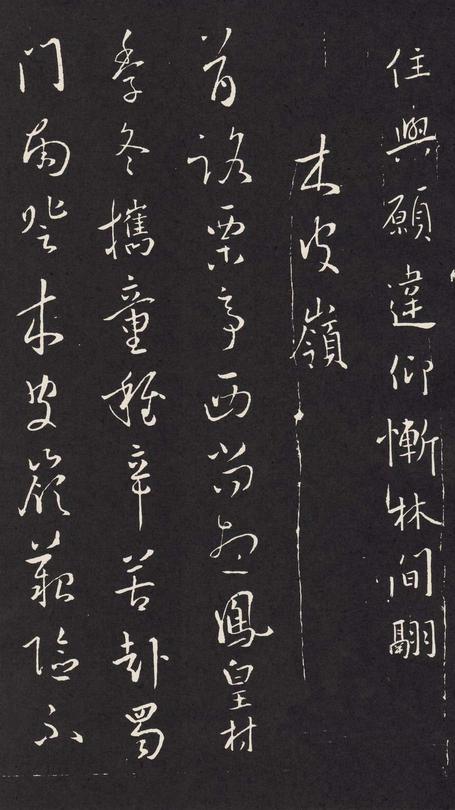 住與願違仰慚林間翮
木皮嶺
首路栗亭西尚想鳳皇村
季冬攜童稚辛苦赴蜀
門南登木皮嶺艱險不